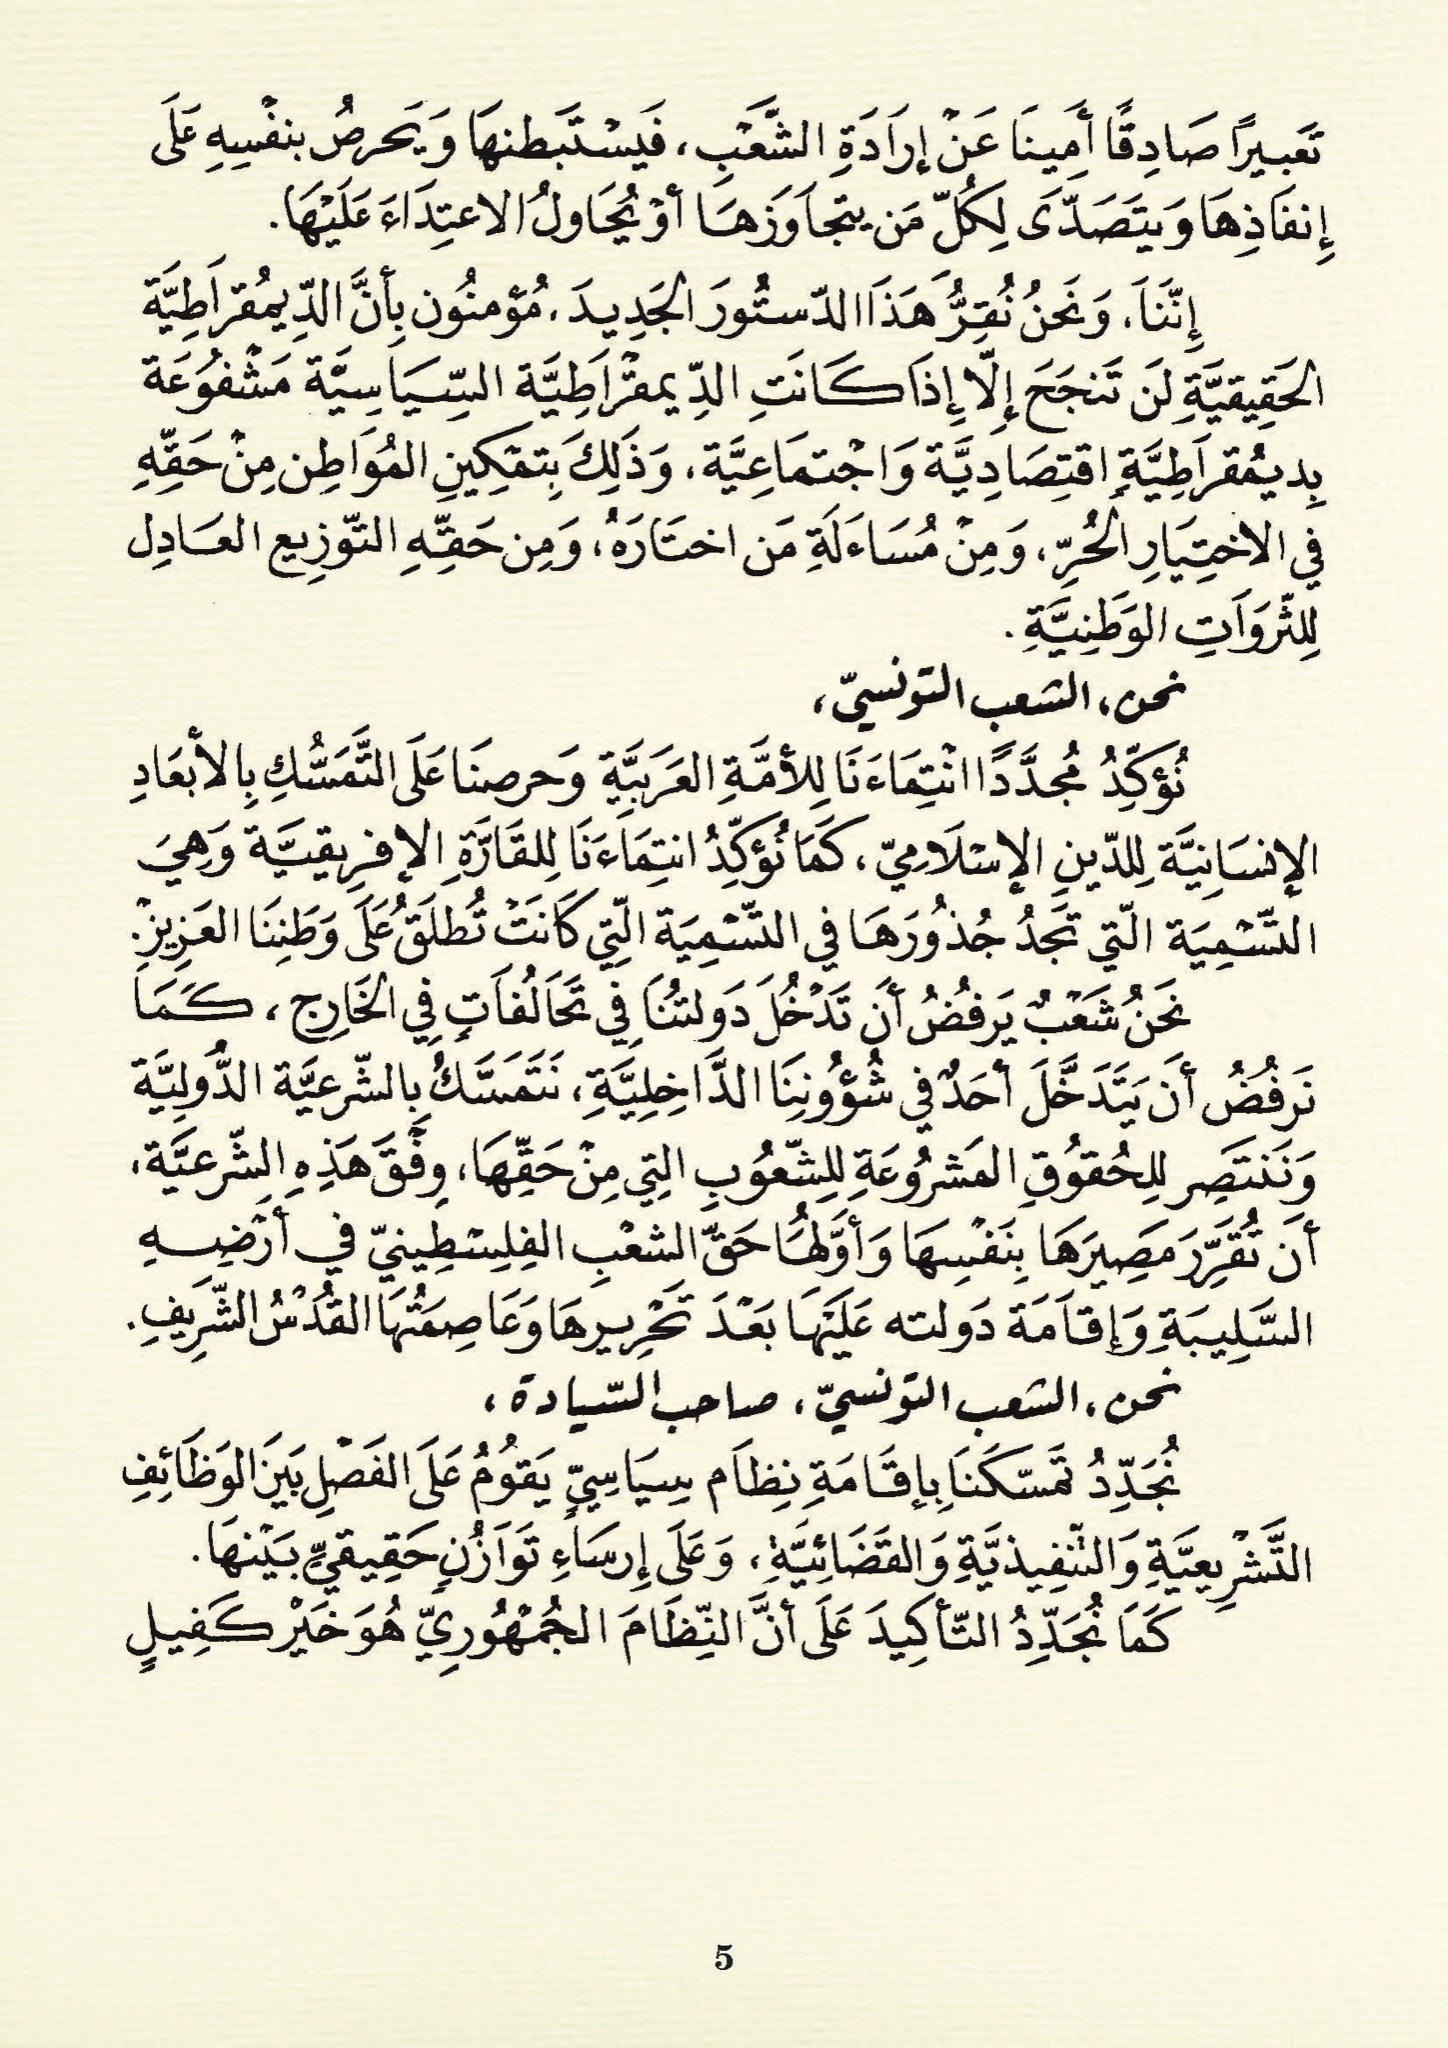 تَعبيرًا صَادِقًا أَمِينَا عَنْ إرَادَةِ الشَّعَبِ، فَيَسْتَبطنهَا وَيَحرصُ بنفْسِهِ عَلَى
إِنفَاذِهَا وَيتَصَدّى لِكُلّ مَن يتجاوَزهَا أوْ يُحَاولُ الاعتِدَاءَ عَلَيْهَا.
إِنّنَا، وَنَحنُ نُقِرُّ هَذَا الدّستُورَ الجَدِيدَ، مُؤمنُون بِأنَّ الدّيمُقراطِيَّة
الحَقِيقيَّةِ لَن تَنجَحَ إِلّا إِذَا كَانَتِ الدّيمقْرَاطِيَّة السِّيَاسِيَّة مَشْفُوعَة
بِديمُقراطِيَّةٍ اقتِصَادِيَّة وَاجْتمَاعِيَّة، وَذَلِكَ بِتمْكِينِ المُوَاطِن مِنْ حَقِّهِ
في الاختِيَارِ الحُرِّ، وَمِنْ مُسَاءَلَةِ مَن اختَارَهُ، وَمِن حَقِّهِ التّوزِيع العَادِلِ
لِلثّروَاتِ الوَطَنِيَّةِ.
نحن، الشعب التونسيّ،
نُؤكِّدُ مُجدَّدًا انْتِمَاءَنَا لِلأمَّةِ العَرَبيَّةِ وَحرصنَا عَلَى التَّمَسُّكِ بِالأبعَادِ
الإنسَانِيَّة لِلدّينِ الإسْلَامِيّ، كَمَا نُؤكِّدُ انتِمَاءَنَا لِلقَارَّةِ الإفرِيقيَّة وَهِيَ
التَّسْمِيَة الّتي تَجَدُ جُذُورَهَا في التسْمِيَة الّتِي كَانَتْ تُطلَقُ عَلَى وَطَنِنَا العَزِيزِ.
نَحَنُ شَعْبٌ يَرفُضُ أَن تَدْخُلَ دَولتنَا فِي تَحَالُفَاتٍ فِي الخَارِج، كَمَا
نَرفُضُ أَن يَتَدَخَّلَ أحَدٌ في شُؤُونِنَا الدَّاخِلِيَّةِ، نَتَمَسَّكُ بِالشّرعيَّة الدُّوَلِيَّة
وَنَنتَصِر لِلحُقوُقِ المَشرُوعَةِ لِلشّعُوبِ التِي مِنْ حَقِّهَا، وِفْقَ هَذِهِ الشّرعيَّة،
أَن تُقَرِّرَ مَصِيرَهَا بِنَفْسِهَا وَأوَّلُهَا حَقّ الشعْبِ الفِلِسْطِينيّ في أرْضِهِ
السَّلِيبَةِ وَإِقَامَة دَولته عَلَيْهَا بَعْدَ تَحْرِيرِهَا وَعَاصِمَتُهَا القُدْسُ الشَّرِيفِ.
نحن، الشعب التونسيّ، صاحب السّيادة،
نُجَدِّدُ تمَسّكَنَا بِإقَامَةِ نِظَام سِيَاسِيٍّ يَقُومُ عَلَى الفَصْلِ بَيَن الوَظَائِفِ
التَّشْرِيعِيَّةِ وَالتّنفِيذيَّةِ وَالقَضَائِيَّةِ، وَعَلَى إِرسَاءِ تَوَازُنٍ حَقِيقيٍّ بَيْنهَا.
كَمَا نُجَدِّدُ التّأكِيدَ عَلَى أنَّ النّظَامَ الجُمْهُورِيّ هُوَ خَيْر كَفِيلٍ
5